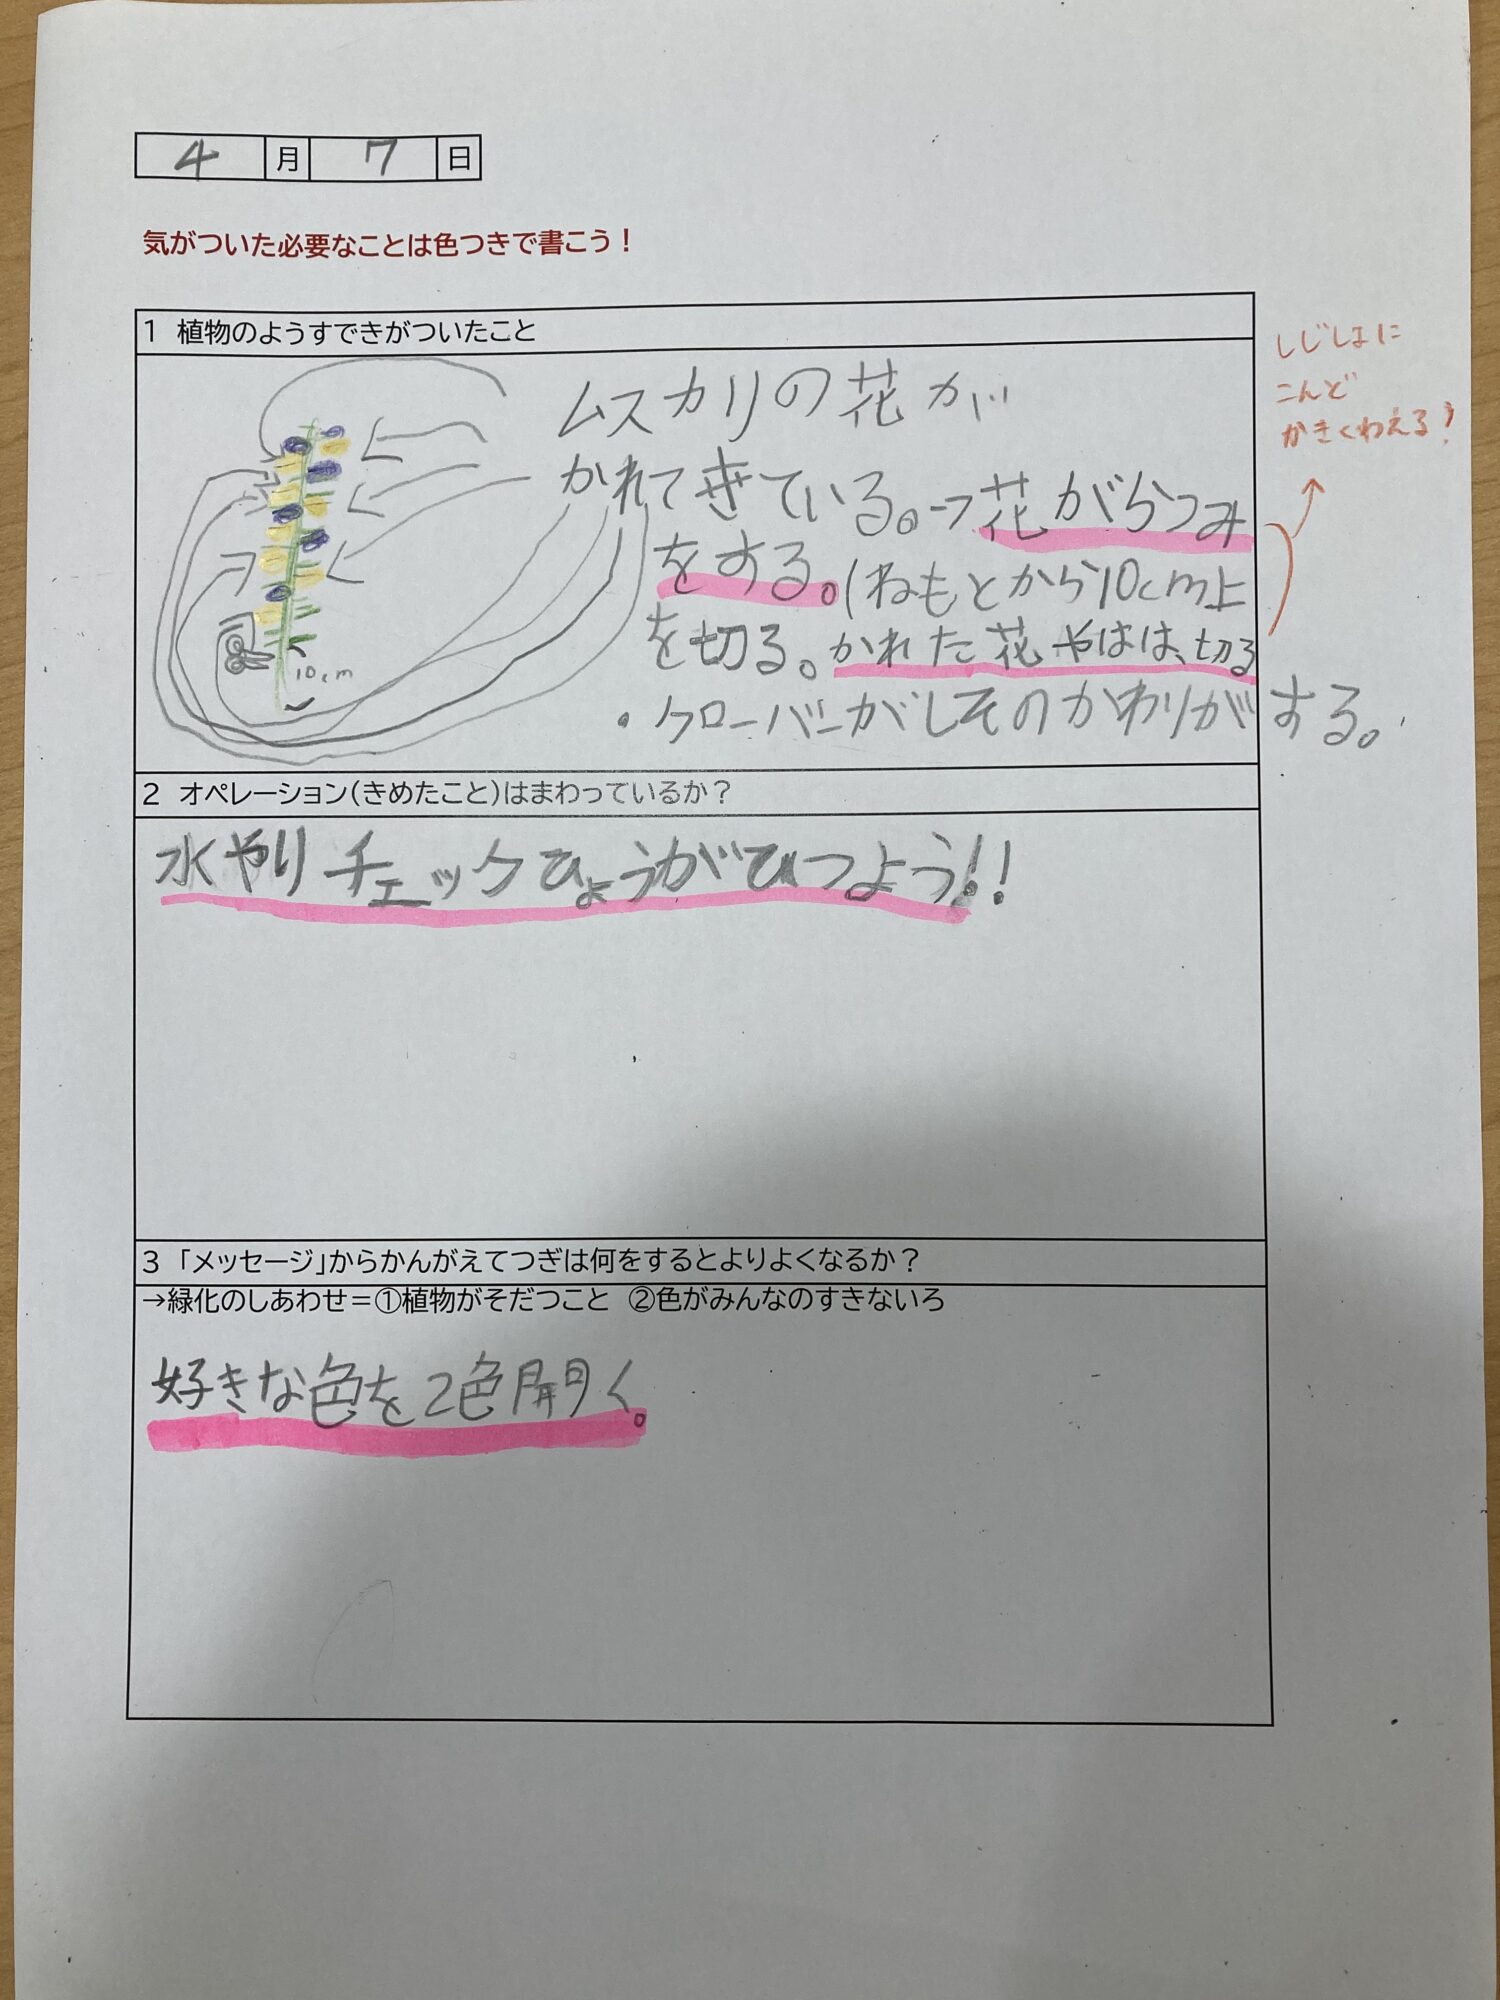 4月7日
気がついた必要なことは色つきで書こう！
1 植物のようすできがついたこと
ムスカリの花が
かれてきている。→花がらつみ
をする。(ねもとから10cm上
を切る。かれた花やはは、切る
・クローバーがしそのかわりがする。
10cm
しじしょに
こんど
かきくわえる！
2 オペレーション(きめたこと)はまわっているか？
水やりチェックひょうがひつよう!!
3 「メッセージ」からかんがえてつぎは何をするとよりよくなるか？
→緑化のしあわせ＝①植物がそだつこと ②色がみんなのすきないろ
好きな色を2色開く。